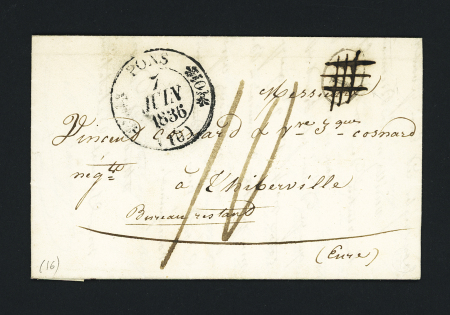 PONS
7
JUIN
1836
(16)
Messieurs
Vincent & Vve
négts
à Thiberville
Bureau restant
(Eure)
(16)